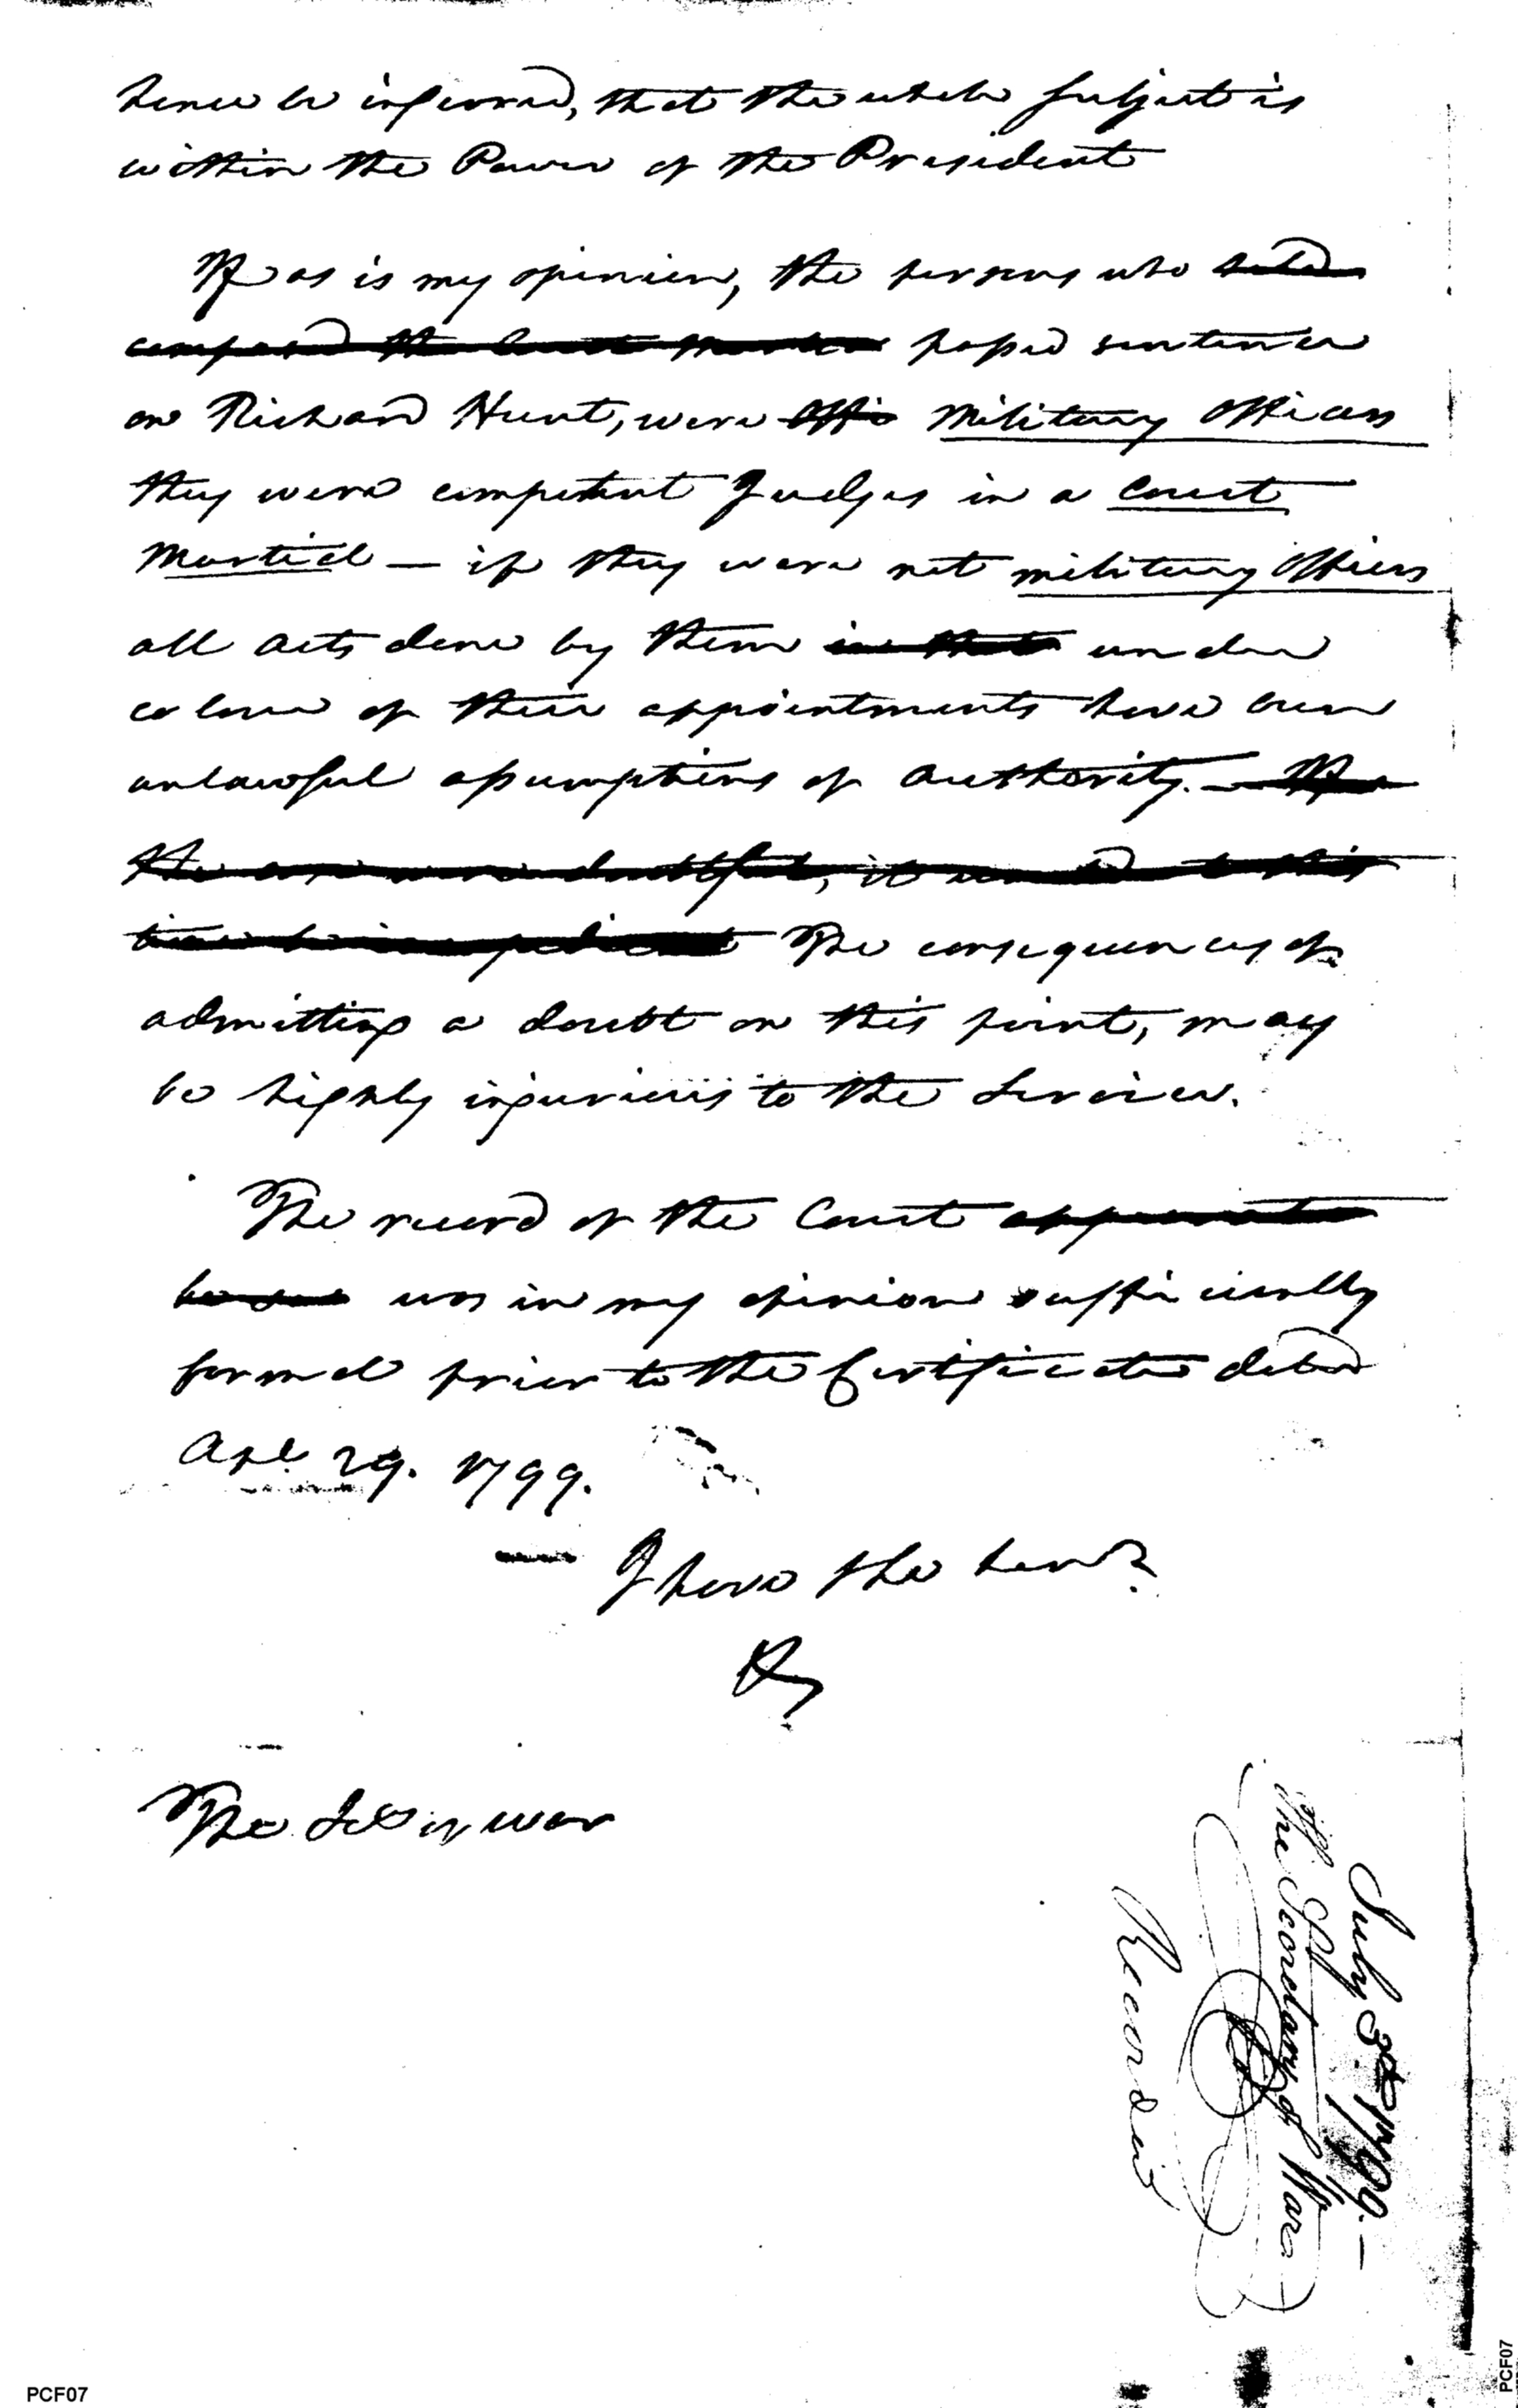 hence be inferred, that the whole subject is
within the Power of the President
If as is my opinion, the persons who
composed the Court Martial passed sentence
on Richard Hunt, were Offi Military Officers
they were competent Judges in a Court
Martial — if they were not military Officers
all acts done by them in that under
colour of their appointments have been
unlawful assumptions of authority. — If
the case were doubtful, it would at this
time be inexpedient The consequences of
admitting a doubt on this point, may
be highly injurious to the Service.
The record of the Court appears to
have was in my opinion sufficiently
formal prior to the Certificate dated
Apl 29. 1799.
— I have the honr
The Secy of War
July 3d 1799. —
The Secretary of War
Recorded
PCF07
PCF07